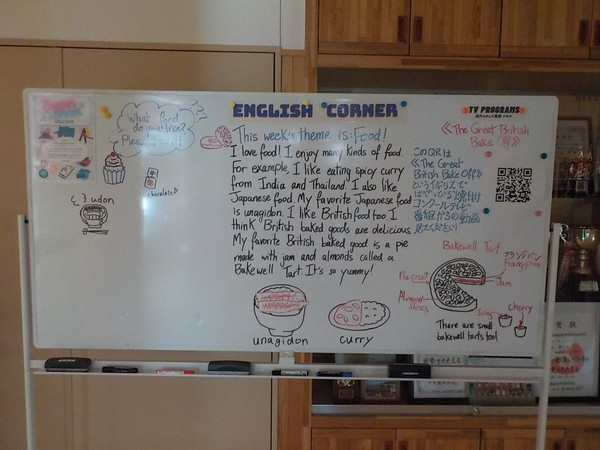 ENGLISH CORNER
TV PROGRAMS
What food
do you like?
Please
This week's theme is: Food!
I love food! I enjoy many kinds of food.
For example, I like eating spicy curry
from India and Thailand. I also like
Japanese food. My favorite Japanese food
is unagidon. I like British food too. I
think British baked goods are delicious.
My favorite British baked good is a pie
made with jam and almonds called a
Bakewell Tart. It's so yummy!
unagidon
curry
udon
chocolate
《The Great British
Bake Off》
このQRは
《The Great
British Bake Off》
という
コンクールテレビ
番組からの動画
見てください
Bakewell Tart
フランジパン
frangipane
Pie crust
Jam
Almond
slices
Icing
cherry
There are small
bakewell tarts too!